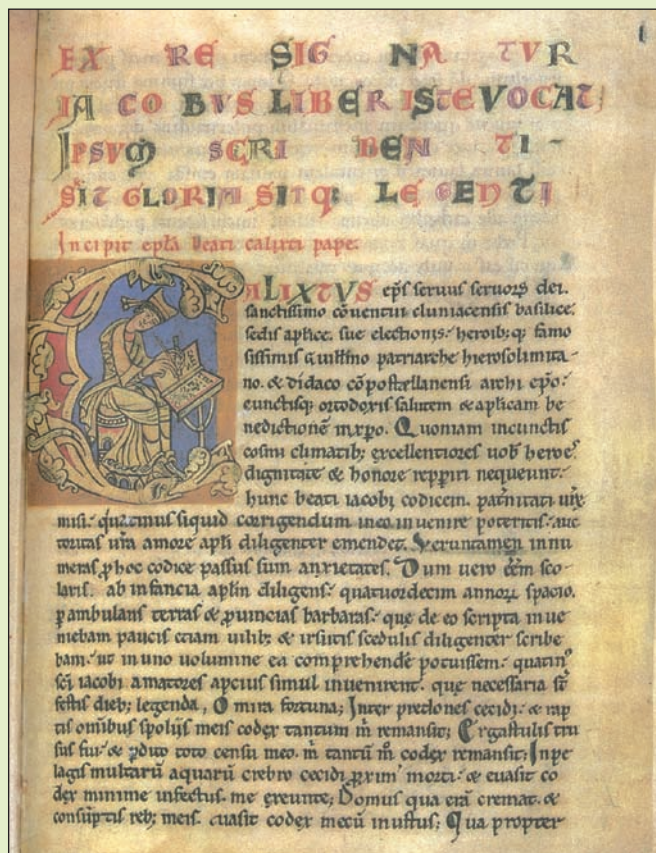 I
EX RE SIG NA TUR
IA CO BVS LIBER ISTE VOCAT,
IPSVM SCRI BEN TI-
SIT GLORIA SITQ; LE GEN TI
Incipit epła beati calixti pape.
CALIXTVS ep̄s seruus seruoꝝ dei.
sanctissimo cōuentui cluniacensis basilice,
sedis aplice. sue electionis: heroib; q; famo
sissimis guillmo patriarche hierosolimita
no. & didaco cōpostellanensi archi ep̄o:
cunctisq; ortodoxis salutem & aplicam be
nedictionē in xp̄o. Quoniam in cunctis
cosmi climatib; excellentiores uob heroes
dignitate & honore repperiri nequeunt:
hunc beati iacobi codicem. paternitati ur̄e
misi: quatinus siquid corrigendum in eo inuenire poteritis: auc
toritas ur̄a amore apłi diligenter emendet. Veruntamen innu
meras p hoc codice passus sum anxietates. Dum uero eēm sco
laris. ab infancia apłm diligens: quatuordecim annoꝝ spacio.
pambulans terras & puincias barbaras: que de eo scripta inue
niebam paucis etiam uilib; & irsutis scedulis diligenter scribe
bam: ut in uno uolumine ea comprehende potuissem: quatin᷒
sc̄i iacobi amatores apcius simul inuenirent. que necessaria s̄t
festis dieb; legenda, O mira fortuna; Inter predones cecidi: & rap
tis omībus spolijs meis codex tantum m̄ remansit; Ergastulis tru
sus fui: & pdito toto censu meo. m̄ tantū m̊ codex remansit; In pe
lagis multarū aquarū crebro cecidi pxim᷒ morti: & euasit co
dex minime infectus. me exeunte; Domus qua erā cremat. &
consūptis reb; meis. euasit codex mecū inustus; Qua propter